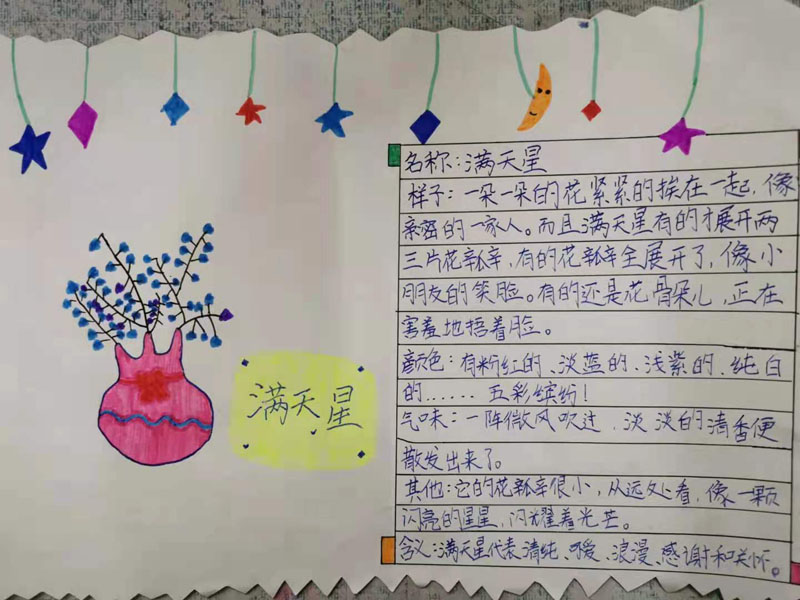 满天星
名称:满天星
样子:一朵一朵的花紧紧的挨在一起,像
亲密的一家人。而且满天星有的才展开两
三片花瓣,有的花瓣全展开了,像小
朋友的笑脸。有的还是花骨朵儿,正在
害羞地捂着脸。
颜色:有粉红的、淡蓝的、浅紫的、纯白
的……五彩缤纷!
气味:一阵微风吹过,淡淡的清香便
散发出来了。
其他:它的花瓣很小,从远处看,像一颗
闪亮的星星,闪耀着光芒。
含义:满天星代表清纯、可爱、浪漫、感谢和关怀。